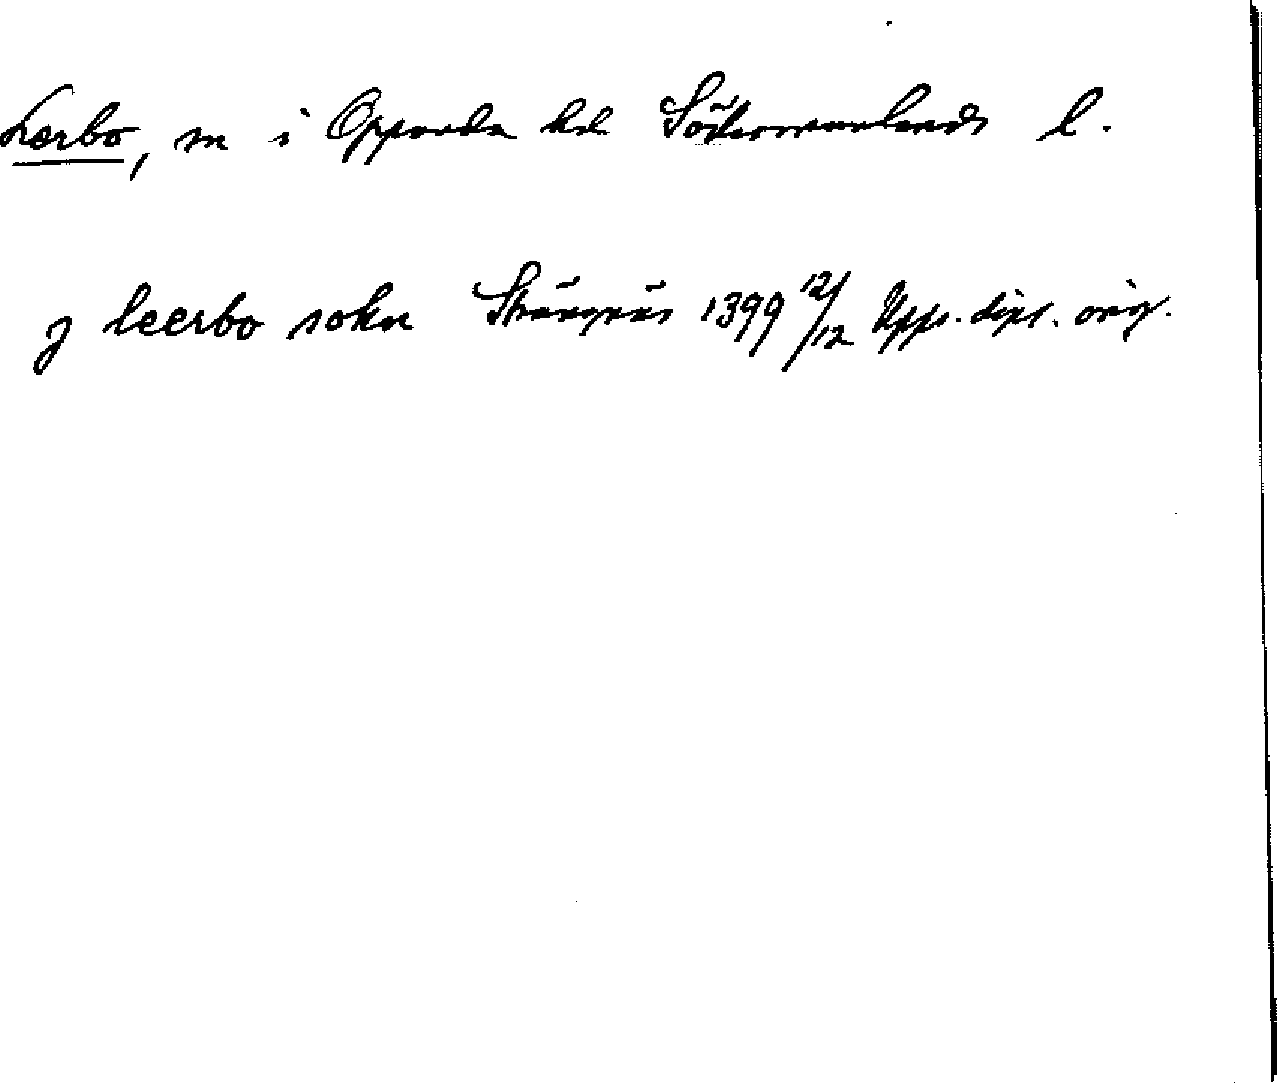 Lerbo, sn i Oppunda hd Södermanlands l.
j leerbo sokn Strängnäs 1399 12/12 Upps. dipl. orig.